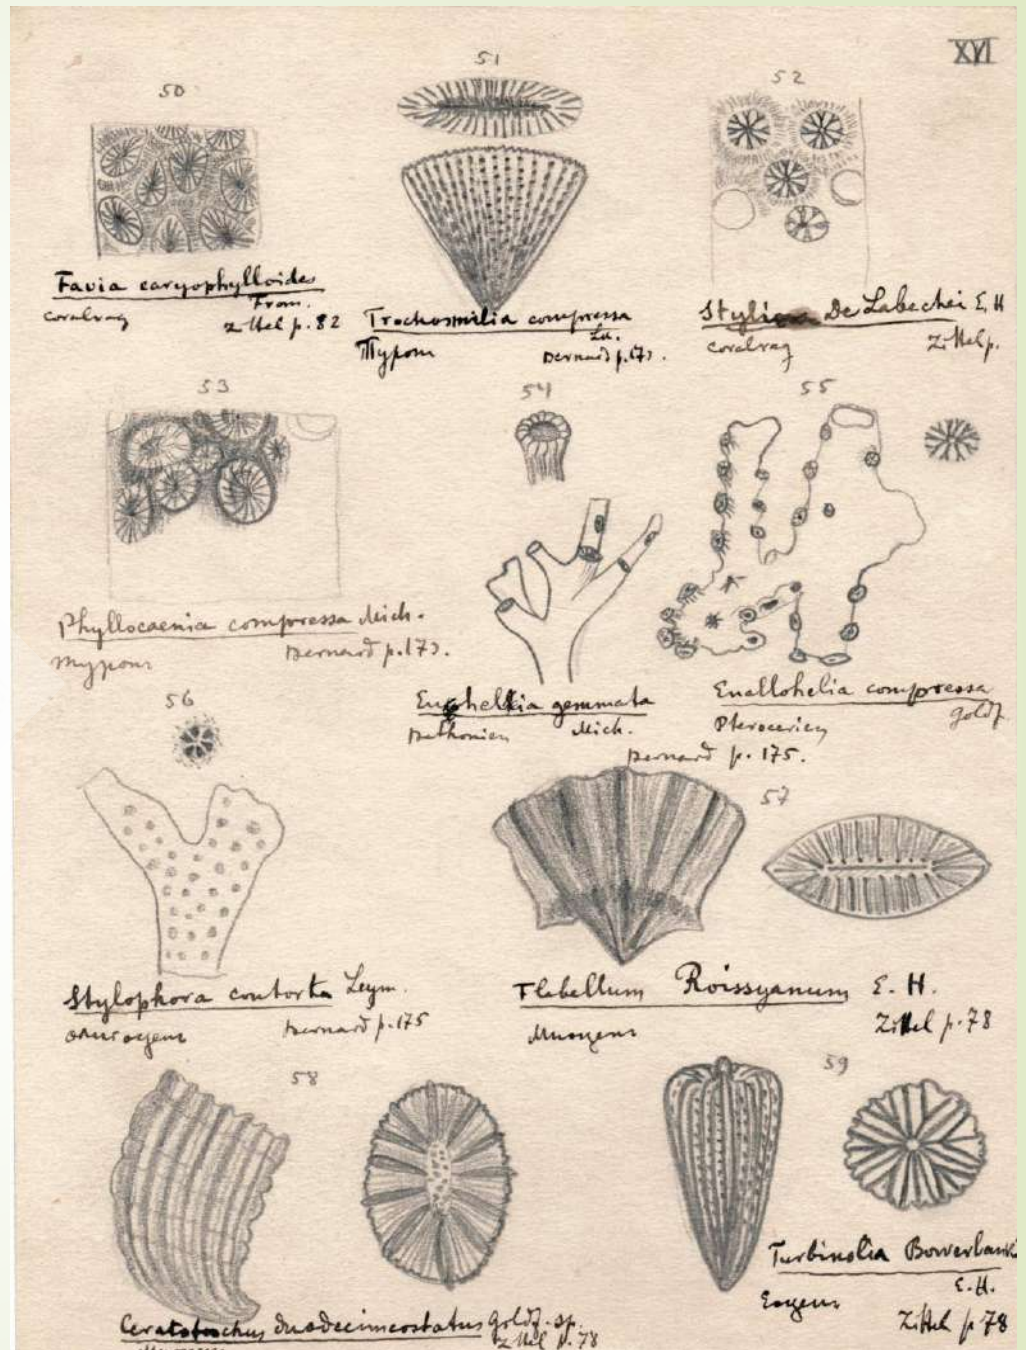 XVI
50
Favia caryophylloides
From.
coralrag
Zittel p. 82
51
Trochosmilia compressa
Lu.
Bernard p. 173.
52
De Labechei E. H
coralrag
Zittel p.
53
Phyllocaenia compressa Mich.
Bernard p. 173.
54
gemmata
Bathonien Mich.
55
Enallohelia compressa
Goldf.
Pterocerien
Bernard p. 175.
56
Stylophora contorta Leym.
Bernard p. 175
57
Flabellum Roissyanum E. H.
Zittel p. 78
58
duodecimcostatus Goldf. sp.
Zittel p. 78
59
Turbinolia Bowerbanki
E. H.
Zittel p 78